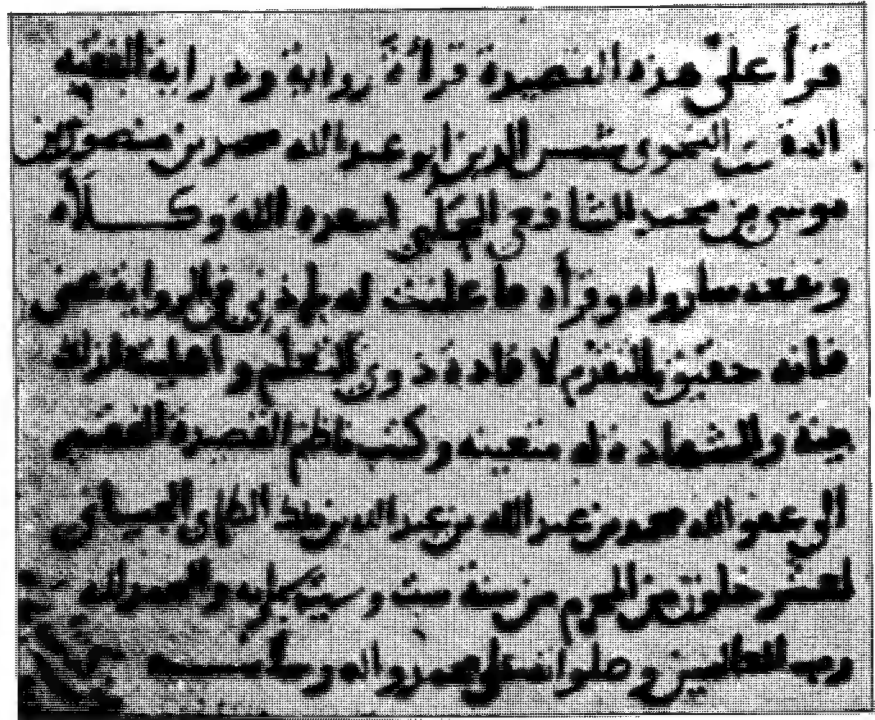 قرأ علىّ هذه القصيدة قرأةَ رواية ودراية الفقيه
النحوى شمس الدين ابو عبد الله محمد بن منصور بن
موسى بن محمد الشافعى الحلبى اسعده الله وكلأه
ونفعه بما رواه وقرأه له الرواية عنى
فانه حقيق بالتقدم لافادة ذوى التعلم واهليته لذلك
بينة والشهادة له متعينه وكتب ناظم القصيدة المفتقر
الى عفو الله محمد بن عبد الله بن عبد الله بن ملك الطاى الجيانى
لعشر خلون من المحرم من سنة ست وستين والحمد لله
رب العالمين وصلواته على محمد واله وسلامه